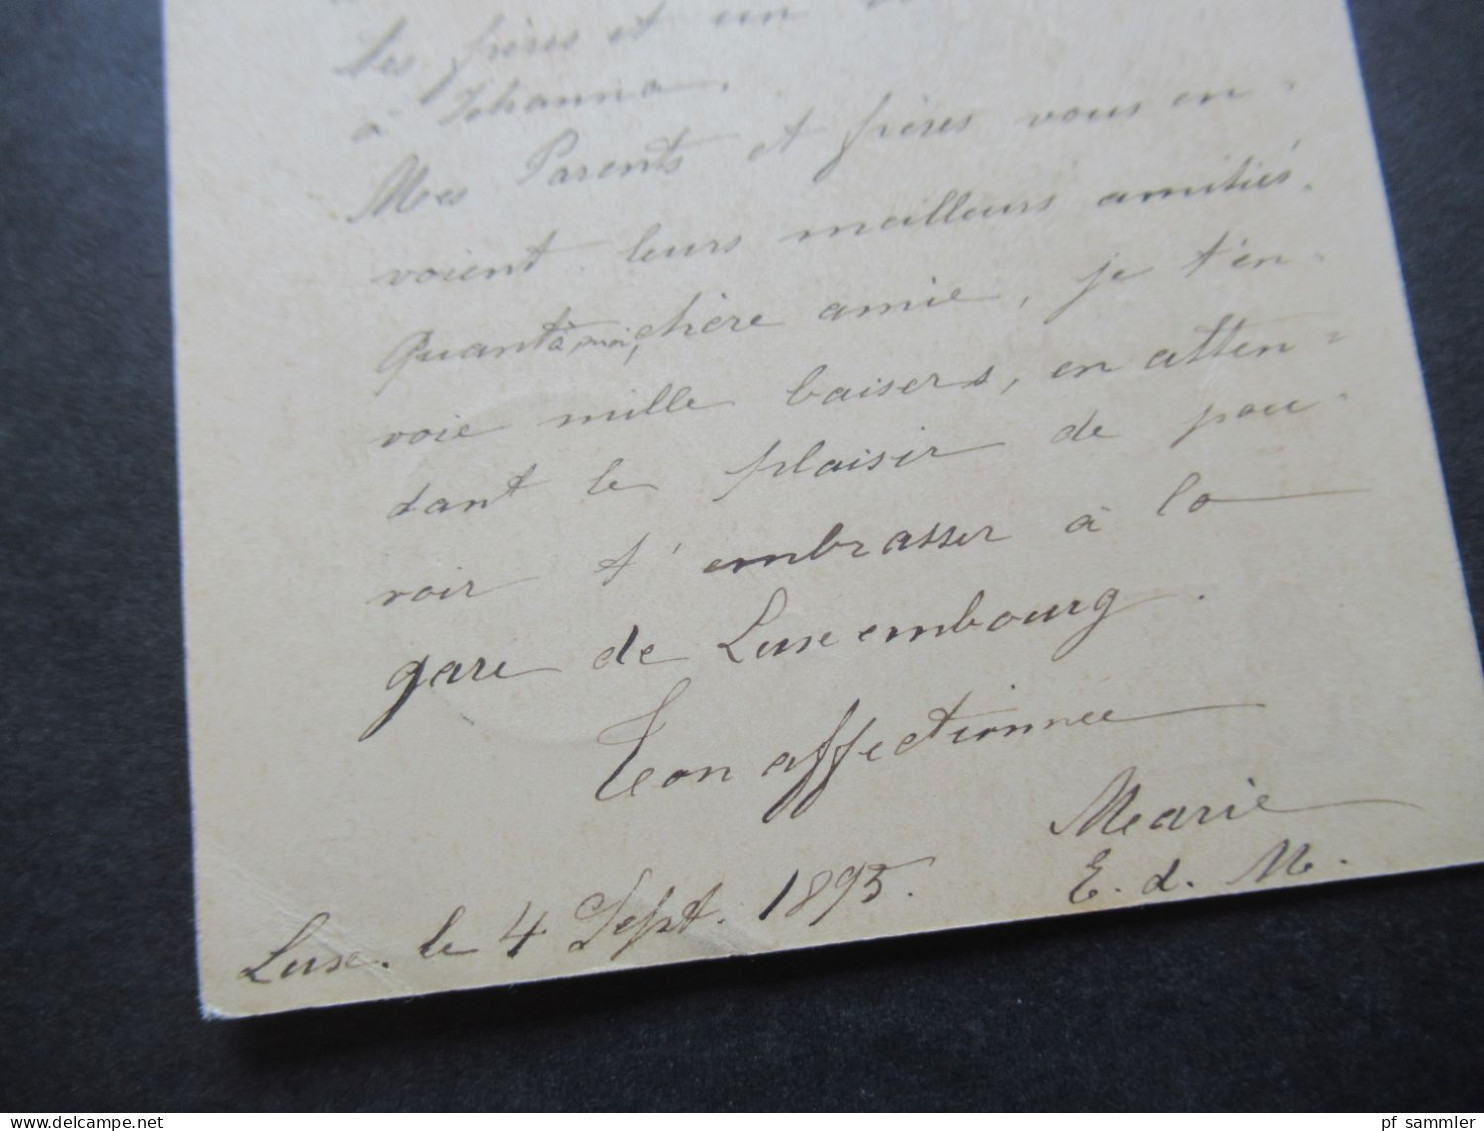 tes frères et un
à Johanna.
Mes Parents et frères vous en-
voient leurs meilleurs amitiés.
Quant à moi, chère amie, je t'en-
voie mille baisers, en atten=
dant le plaisir de pou-
voir t'embrasser à la
gare de Luxembourg.
Ton affectionnée
Marie
E. d. M.
Lux. le 4 Sept. 1895.
pf_sammler